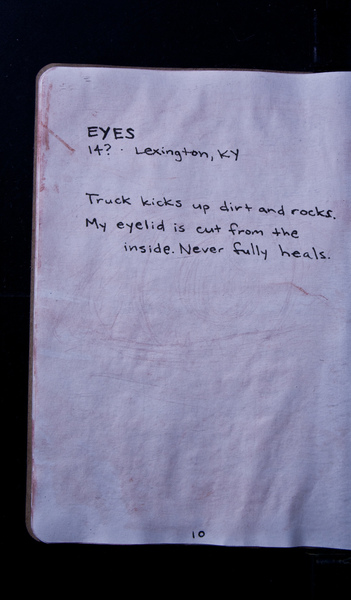 EYES
14? · Lexington, KY
Truck kicks up dirt and rocks.
My eyelid is cut from the
inside. Never fully heals.
10